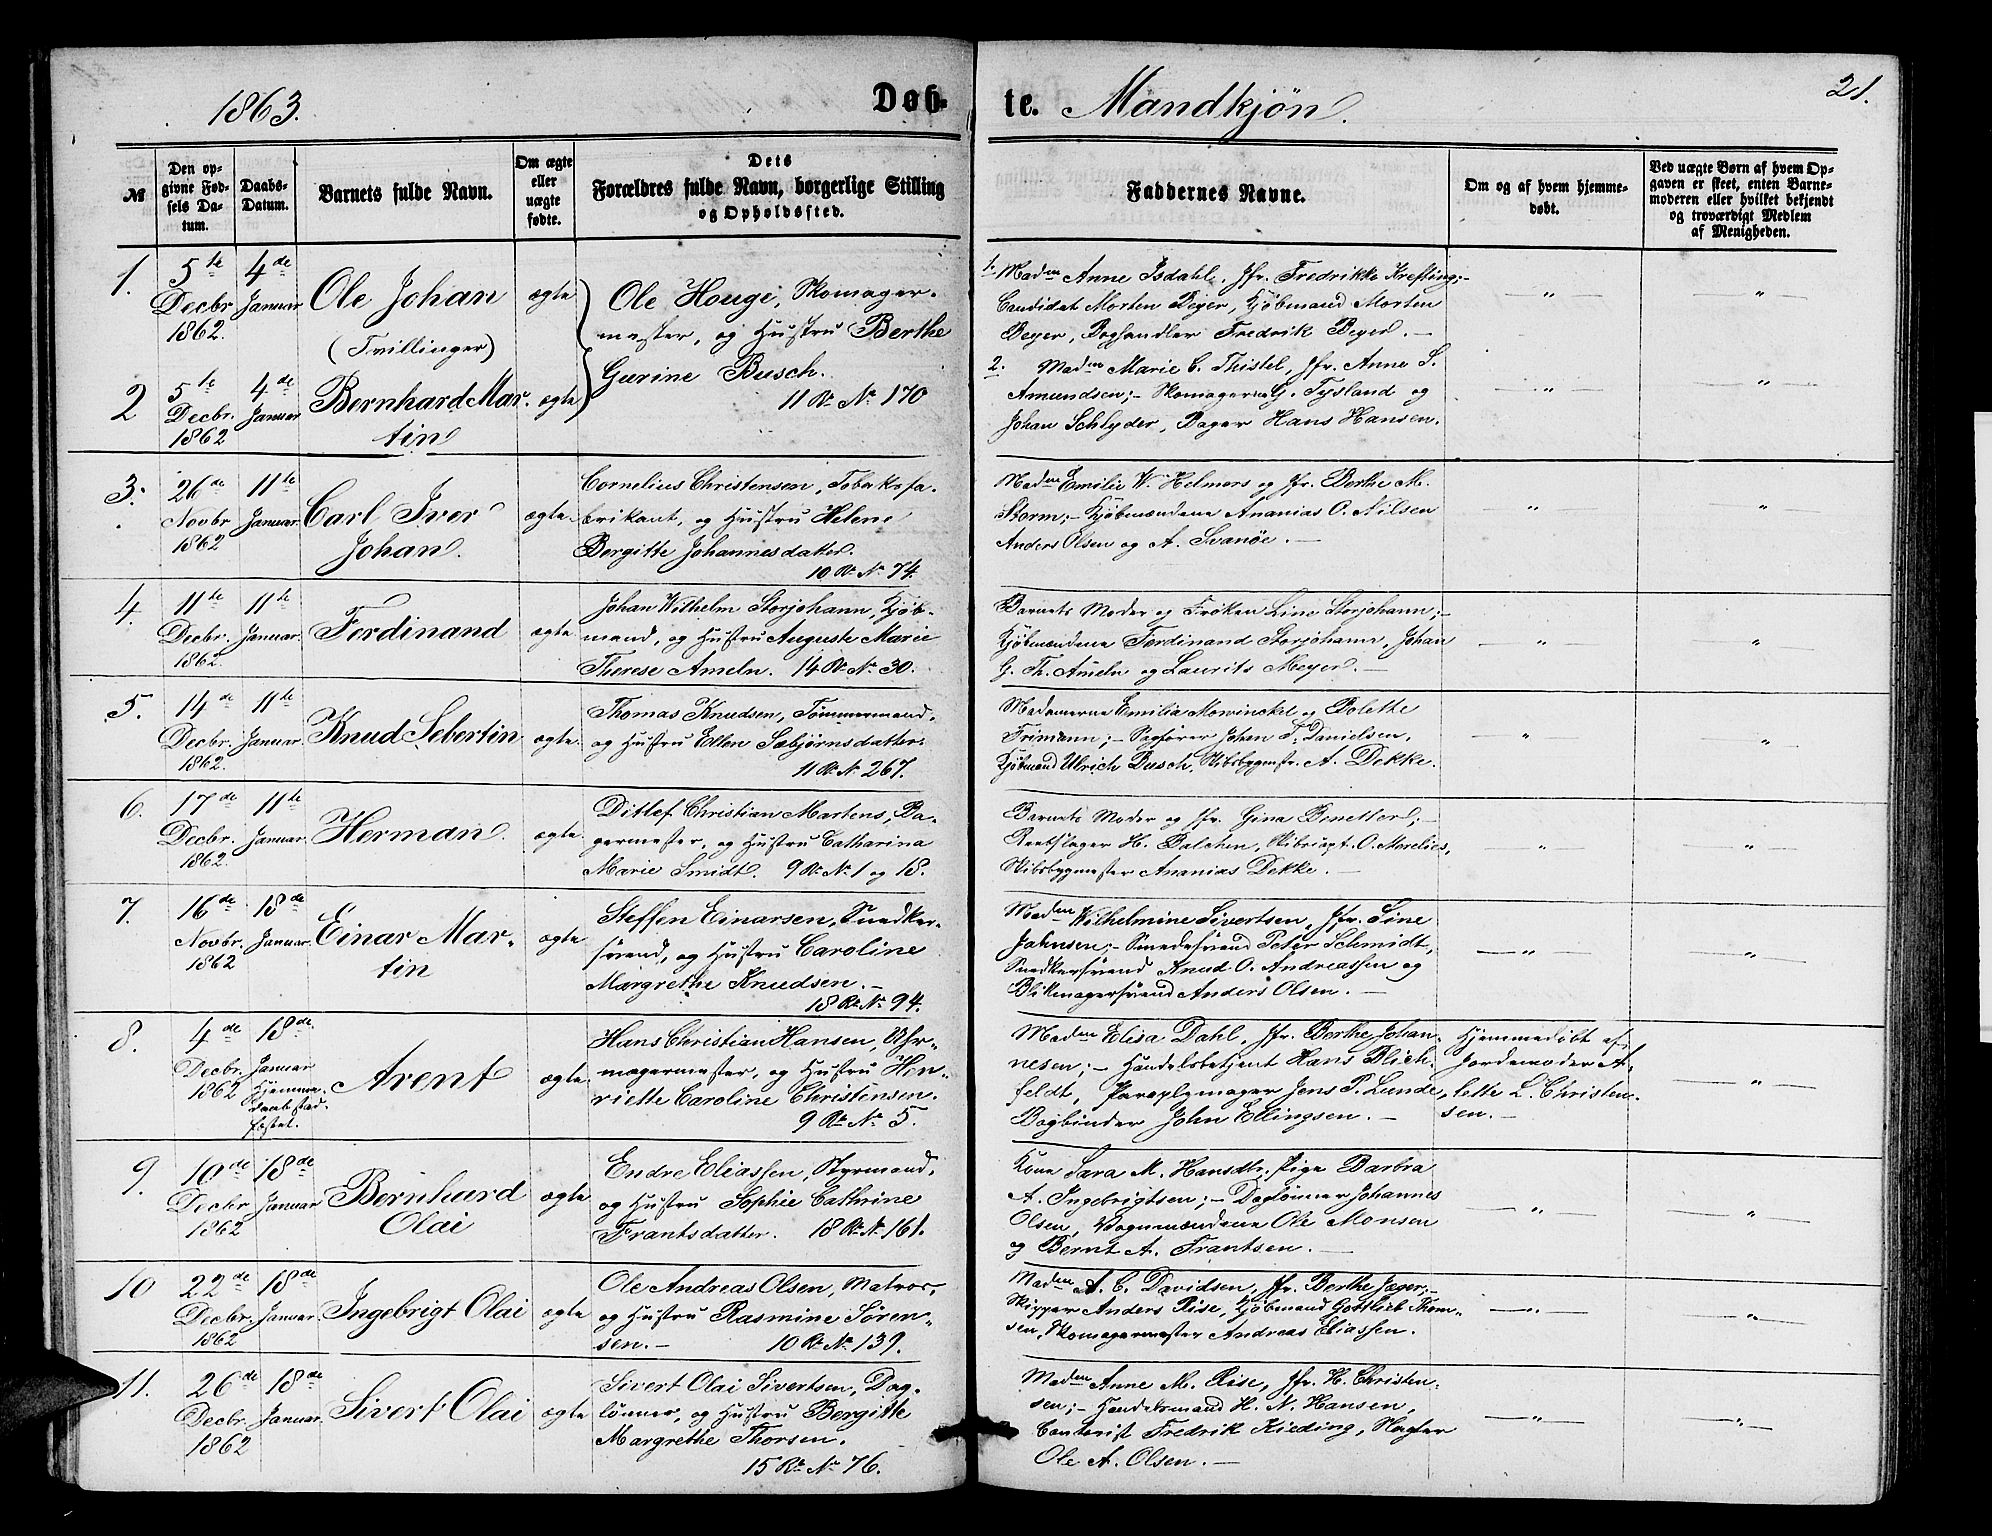 1863.
Døb-
te. Mandkjøn.
21.
№
Den op-
givne Fød-
sels Da-
tum.
Daabs-
Datum.
Barnets fulde Navn.
Om ægte
eller
uægte
fødte.
Dets
Forældres fulde Navn, borgerlige Stilling
og Opholdssted.
Faddernes Navne.
Om og af hvem hjemme-
døbt.
Ved uægte Børn af hvem Op-
gaven er skeet, enten Barne-
moderen eller hvilket bekjendt
og troværdigt Medlem
af Menigheden.
1.
5te
Decbr
1862.
4de
Januar
Ole Johan
(Tvillinger)
ægte
Ole Houge, Skomager-
mester, og Hustru Berthe
Gurine Busch.
11 R. № 170
1. Madm Anne Isdahl, Jfr. Fredrikke Krefting;-
Candidat Morten Beyer, Kjøbmand Morten
Beyer, Boghandler Fredrik Beyer. —
— " —
— " —
2
5te
Decbr.
1862
4de
Januar
Bernhard Mar-
tin
ægte
2. Madm Marie C. Thistel, Jfr. Anne S.
Amundsen; - Skomagerne G. Tysland og
Johan Schlyder, Bager Hans Hansen.
— " —
— " —
3.
26de
Novbr
1862
11te
Januar.
Carl Iver
Johan.
ægte.
Cornelius Christensen, Tobaksfa-
brikant, og Hustru Helene
Bergitte Johannesdatter.
10 R. № 74.
Madm Emilie W. Helmers og Jfr. Berthe M.
Storm; - Kjøbmændene Ananias O. Nilsen
Anders Olsen og A. Svanøe. —
— " —
"
4.
11te
Decbr.
1862.
11te
Januar.
Ferdinand
ægte
Johan Wilhelm Storjohann, Kjøb-
mand, og Hustru Auguste Marie
Therese Ameln. 14 R. № 30.
Barnets Moder og Frøken Line Storjohann; -
Kjøbmændene Ferdinand Storjohann, Johan
G. Th. Ameln og Laurits Meyer. —
— " —
"
5.
14de
Decbr.
1862.
11te
Januar.
Knud Sebertin
ægte.
Thomas Knudsen, Tømmermand,
og Hustru Ellen Sæbjørnsdatter.
11 R. № 267.
Madamerne Emilia Mowinckel og Bolette
Frimann; - Sagfører Johan F. Danielsen,
Kjøbmand Ulrich Busch, Skibsbygmstr. A. Dekke.
— " —
"
6.
17de
Decbr.
1862.
11te
Januar.
Herman.
ægte.
Ditlef Christian Martens, Ba-
germester, og Hustru Catharina
Marie Smidt. 9 R. № 1 og 18.
Barnets Moder og Jfr. Gina Benetter; -
Reebslager H. Balchen, Skibscapt. O. Morelius,
Skibsbygmester Ananias Dekke. —
— " —
"
7.
16de
Novbr.
1862
18de
Januar.
Einar Mar-
tin
ægte
Steffen Einarsen, Snedker-
svend, og Hustru Caroline
Margrethe Knudsen. —
18 R. № 94.
Madm Wilhelmine Sivertsen, Jfr. Sine
Jahnsen; - Smedesvend Peter Schmidt,
Snedkersvend Knud O. Andreassen og
Blikmagersvend Anders Olsen. —
— " —
— " —
8.
4de
Decbr.
1862
18de.
Januar
Hjemme-
daab stad-
fæstet.
Arent
ægte.
Hans Christian Hansen, Uhr-
magermester, og Hustru Hen-
riette Caroline Christensen.
9 R. № 5.
Madm Elisa Dahl, Jfr. Berthe Johan-
nesen; - Handelsbetjent Hans Blich-
feldt, Paraplymager Jens P. Lunde,
Bogbinder John Ellingsen. —
Hjemmedøbt af
Jordemoder A-
lette L. Christen-
sen. —
— " —
9.
10de
Decbr
1862
18de
Januar
Bernhard
Olai
ægte
Endre Eliassen, Styrmand,
og Hustru Sophie Cathrine
Frantsdatter. 18 R. № 161.
Kone Sara M. Hansdtr. Pige Barbra
A. Ingebrigtsen; - Daglønner Johannes
Olsen, Vognmændene Ole Monsen
og Bernt A. Frantsen. —
— " —
— " —
10
22de
Decbr.
1862
18de
Januar.
Ingebrigt Olai
ægte
Ole Andreas Olsen, Matros,
og Hustru Rasmine Søren-
sen. — 10 R. № 139.
Madm A. C. Davidsen, Jfr. Berthe Jæger; -
Skipper Anders Rise, Kjøbmand Gottlieb Thom-
sen, Skomagermester Andreas Eliassen.
— " —
— " —
11.
26de
Decbr.
1862
18de
Januar.
Sivert Olai
ægte
Sivert Olai Sivertsen, Dag-
lønner, og Hustru Bergitte
Margrethe Thorsen.
15 R. № 76.
Madm Anne M. Rise, Jfr. H. Christen-
sen; - Handelsmand H. N. Hansen,
Contorist Fredrik Kieding, Slagter
Ole A. Olsen. —
— " —
— " —